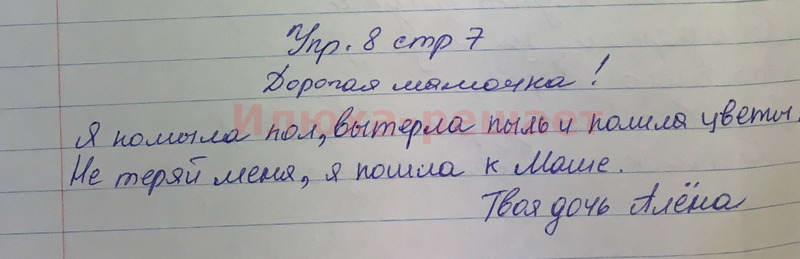 Упр. 8 стр 7
Дорогая мамочка!
Я помыла пол, вытерла пыль и полила цветы.
Не теряй меня, я пошла к Маше.
Твоя дочь Алёна
Илюха-решает